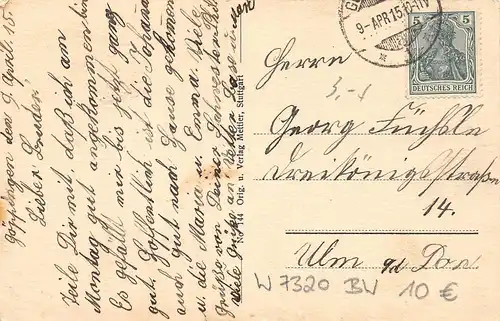 Göppingen den 9. April. 15.
Lieber Bruder,
Teile Dir mit, daß ich am
Montag gut angekommen bin
Es gefällt mir bis jetzt ganz
gut. Hoffentlich ist die Johanna
auch gut nach Hause gekommen
u. die Maria u. Emma. Viele
Grüße von Deiner Schwester
Viele Grüße an Vetter
Nr. 144 Orig. u. Verlag Metzler, Stuttgart
9-APR15.10-11V
5 5
DEUTSCHES REICH
Herrn
3.-
Georg Füchsle
Dreikönigsstraße
14.
Ulm a/d Don
W 7320 BW 10 €